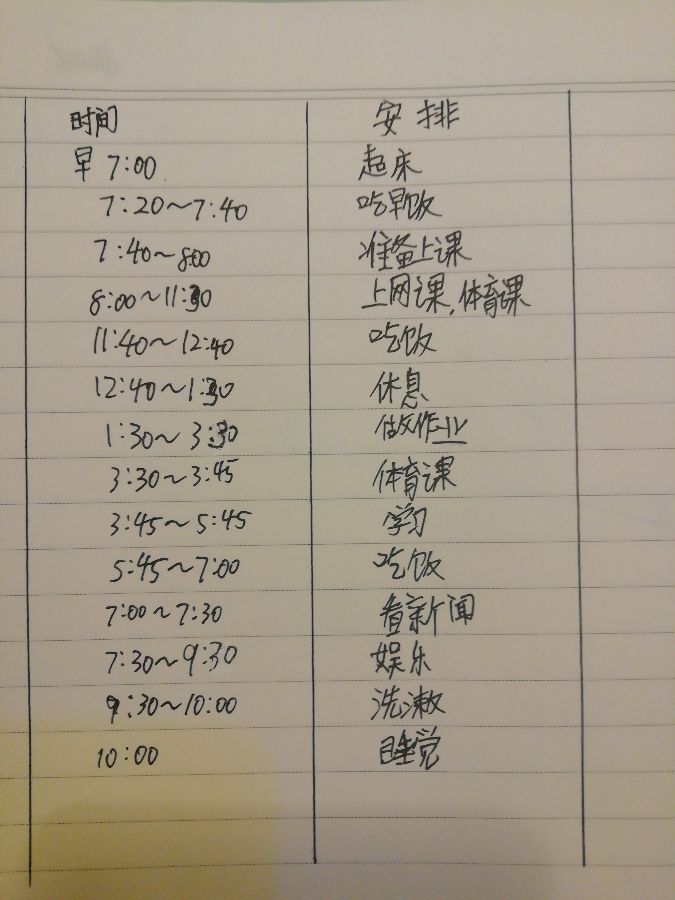 时间 安排
早 7:00 起床
7:20~7:40 吃早饭
7:40~8:00 准备上课
8:00~11:30 上网课,体育课
11:40~12:40 吃饭
12:40~1:30 休息
1:30~3:30 做作业
3:30~3:45 体育课
3:45~5:45 学习
5:45~7:00 吃饭
7:00~7:30 看新闻
7:30~9:30 娱乐
9:30~10:00 洗漱
10:00 睡觉